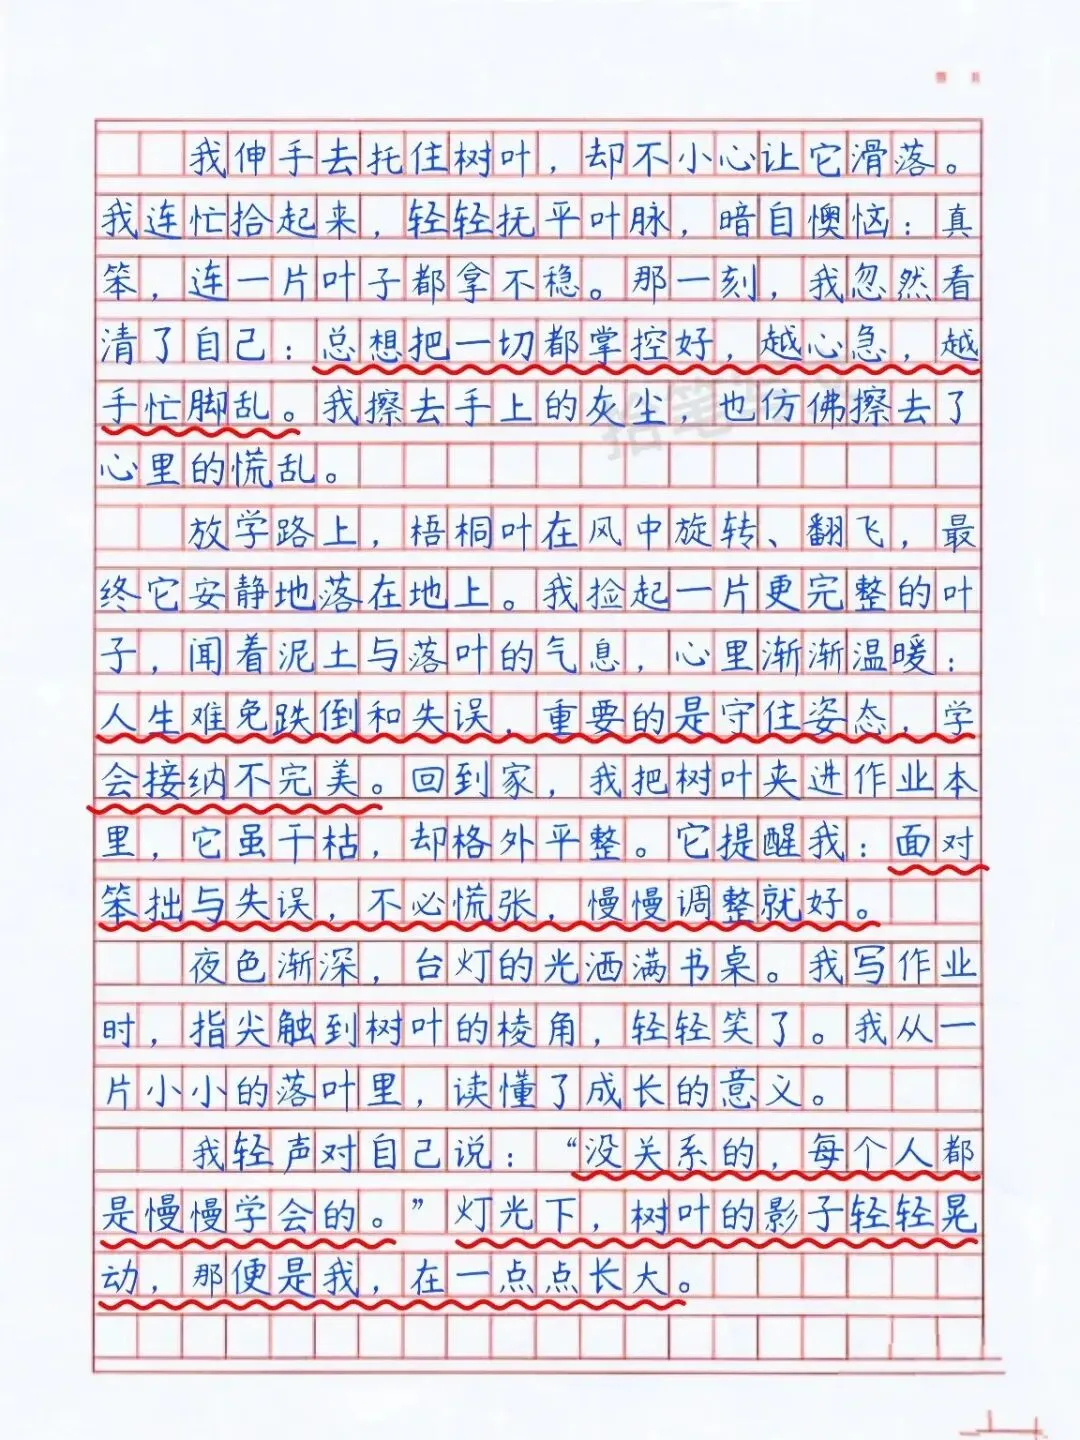 我伸手去托住树叶，却不小心让它滑落。
我连忙拾起来，轻轻抚平叶脉，暗自懊恼：真
笨，连一片叶子都拿不稳。那一刻，我忽然看
清了自己：总想把一切都掌控好，越心急，越
手忙脚乱。我擦去手上的灰尘，也仿佛擦去了
心里的慌乱。
放学路上，梧桐叶在风中旋转、翻飞，最
终它安静地落在地上。我捡起一片更完整的叶
子，闻着泥土与落叶的气息，心里渐渐温暖：
人生难免跌倒和失误，重要的是守住姿态，学
会接纳不完美。回到家，我把树叶夹进作业本
里，它虽干枯，却格外平整。它提醒我：面对
笨拙与失误，不必慌张，慢慢调整就好。
夜色渐深，台灯的光洒满书桌。我写作业
时，指尖触到树叶的棱角，轻轻笑了。我从一
片小小的落叶里，读懂了成长的意义。
我轻声对自己说：“没关系的，每个人都
是慢慢学会的。”灯光下，树叶的影子轻轻晃
动，那便是我，在一点点长大。